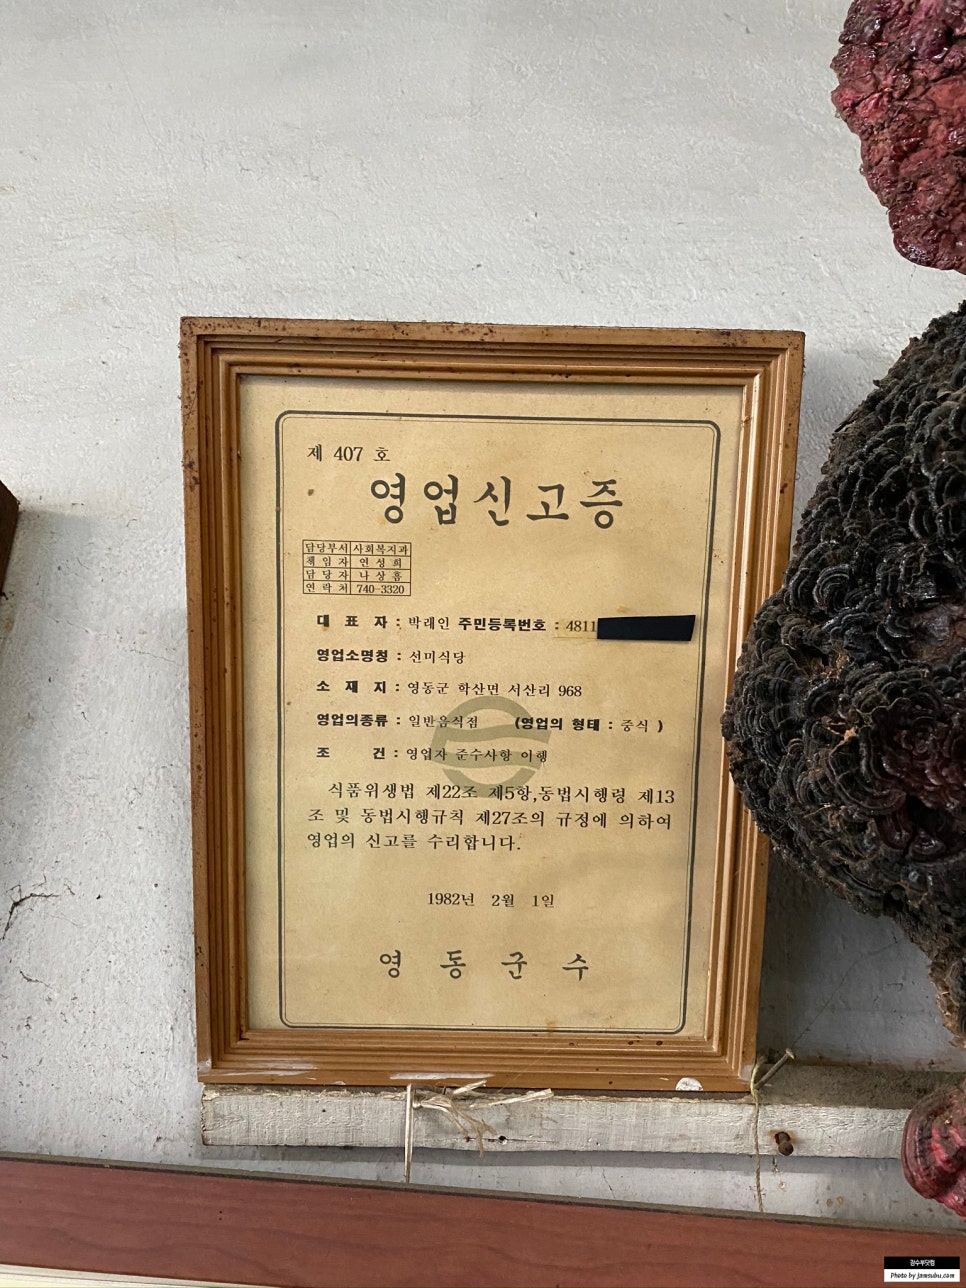 제 407 호
영업신고증
담당부서 사회복지과
책임자 연성희
담당자 나상흠
연락처 740-3320
대 표 자 : 박래인 주민등록번호 : 4811
영업소명칭 : 선미식당
소 재 지 : 영동군 학산면 서산리 968
영업의종류 : 일반음식점 (영업의 형태 : 중식 )
조 건 : 영업자 준수사항 이행
식품위생법 제22조 제5항,동법시행령 제13
조 및 동법시행규칙 제27조의 규정에 의하여
영업의 신고를 수리합니다.
1982년 2월 1일
영 동 군 수
잠수부닷컴
Photo by jamsubu.com